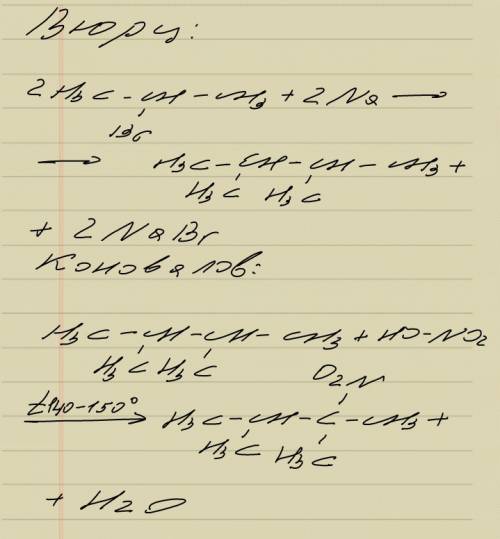 Вюрц:
2H₃C-CH-CH₃ + 2Na →
Br
→ H₃C-CH-CH-CH₃ +
H₃C H₃C
+ 2NaBr
Коновалов:
H₃C-CH-CH-CH₃ + HO-NO₂
H₃C H₃C
O₂N
t140-150° H₃C-CH-C-CH₃ +
H₃C H₃C
+ H₂O